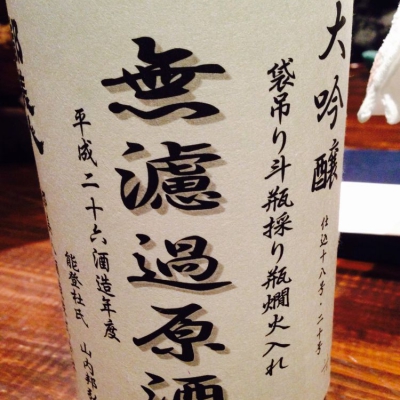 大吟醸
仕込十八号・二十号
袋吊り斗瓶採り瓶燗火入れ
無濾過原酒
平成二十六酒造年度
能登杜氏 山内邦